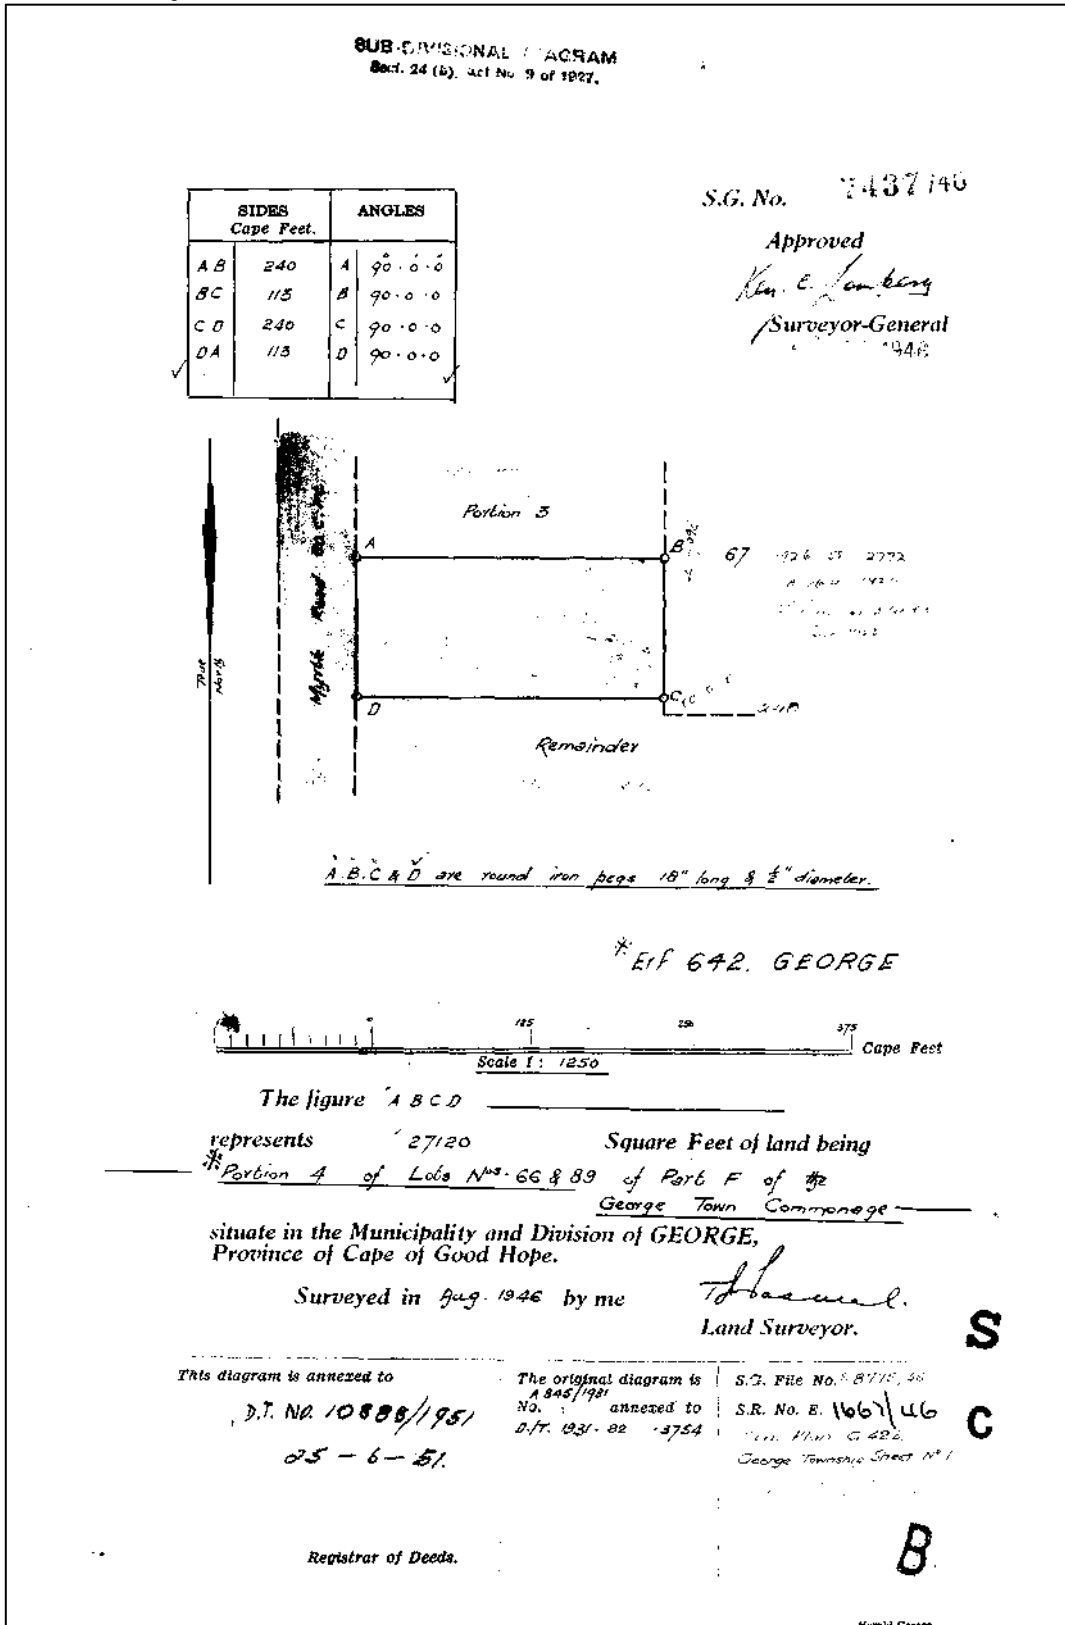 SUB-DIVISIONAL DIAGRAM
Sect. 24 (b). Act No. 9 of 1927.
S.G. No. 7437/46
Approved
Surveyor-General
1946
SIDES
Cape Feet.
ANGLES
AB 240 A 90°.0'.0"
BC 113 B 90.0.0
CD 240 C 90.0.0
DA 113 D 90.0.0
Portion 3
A
B
67
Myrtle Road
True North
D
C
Remainder
A.B.C & D are round iron pegs 18" long & ½" diameter.
* Erf 642. GEORGE
0 125 250 375
Cape Feet
Scale 1: 1250
The figure A B C D
represents 27120 Square Feet of land being
* Portion 4 of Lots Nos. 66 & 89 of Part F of the
George Town Commonage
situate in the Municipality and Division of GEORGE,
Province of Cape of Good Hope.
Surveyed in Aug. 1946 by me
Land Surveyor.
This diagram is annexed to
D.T. No. 10888/1951
25-6-51.
Registrar of Deeds.
The original diagram is
A 845/1981
No. annexed to
D/T. 1931-82-3754
S.G. File No.
S.R. No. E. 1667/46
George Township Sheet No 1
S
C
B